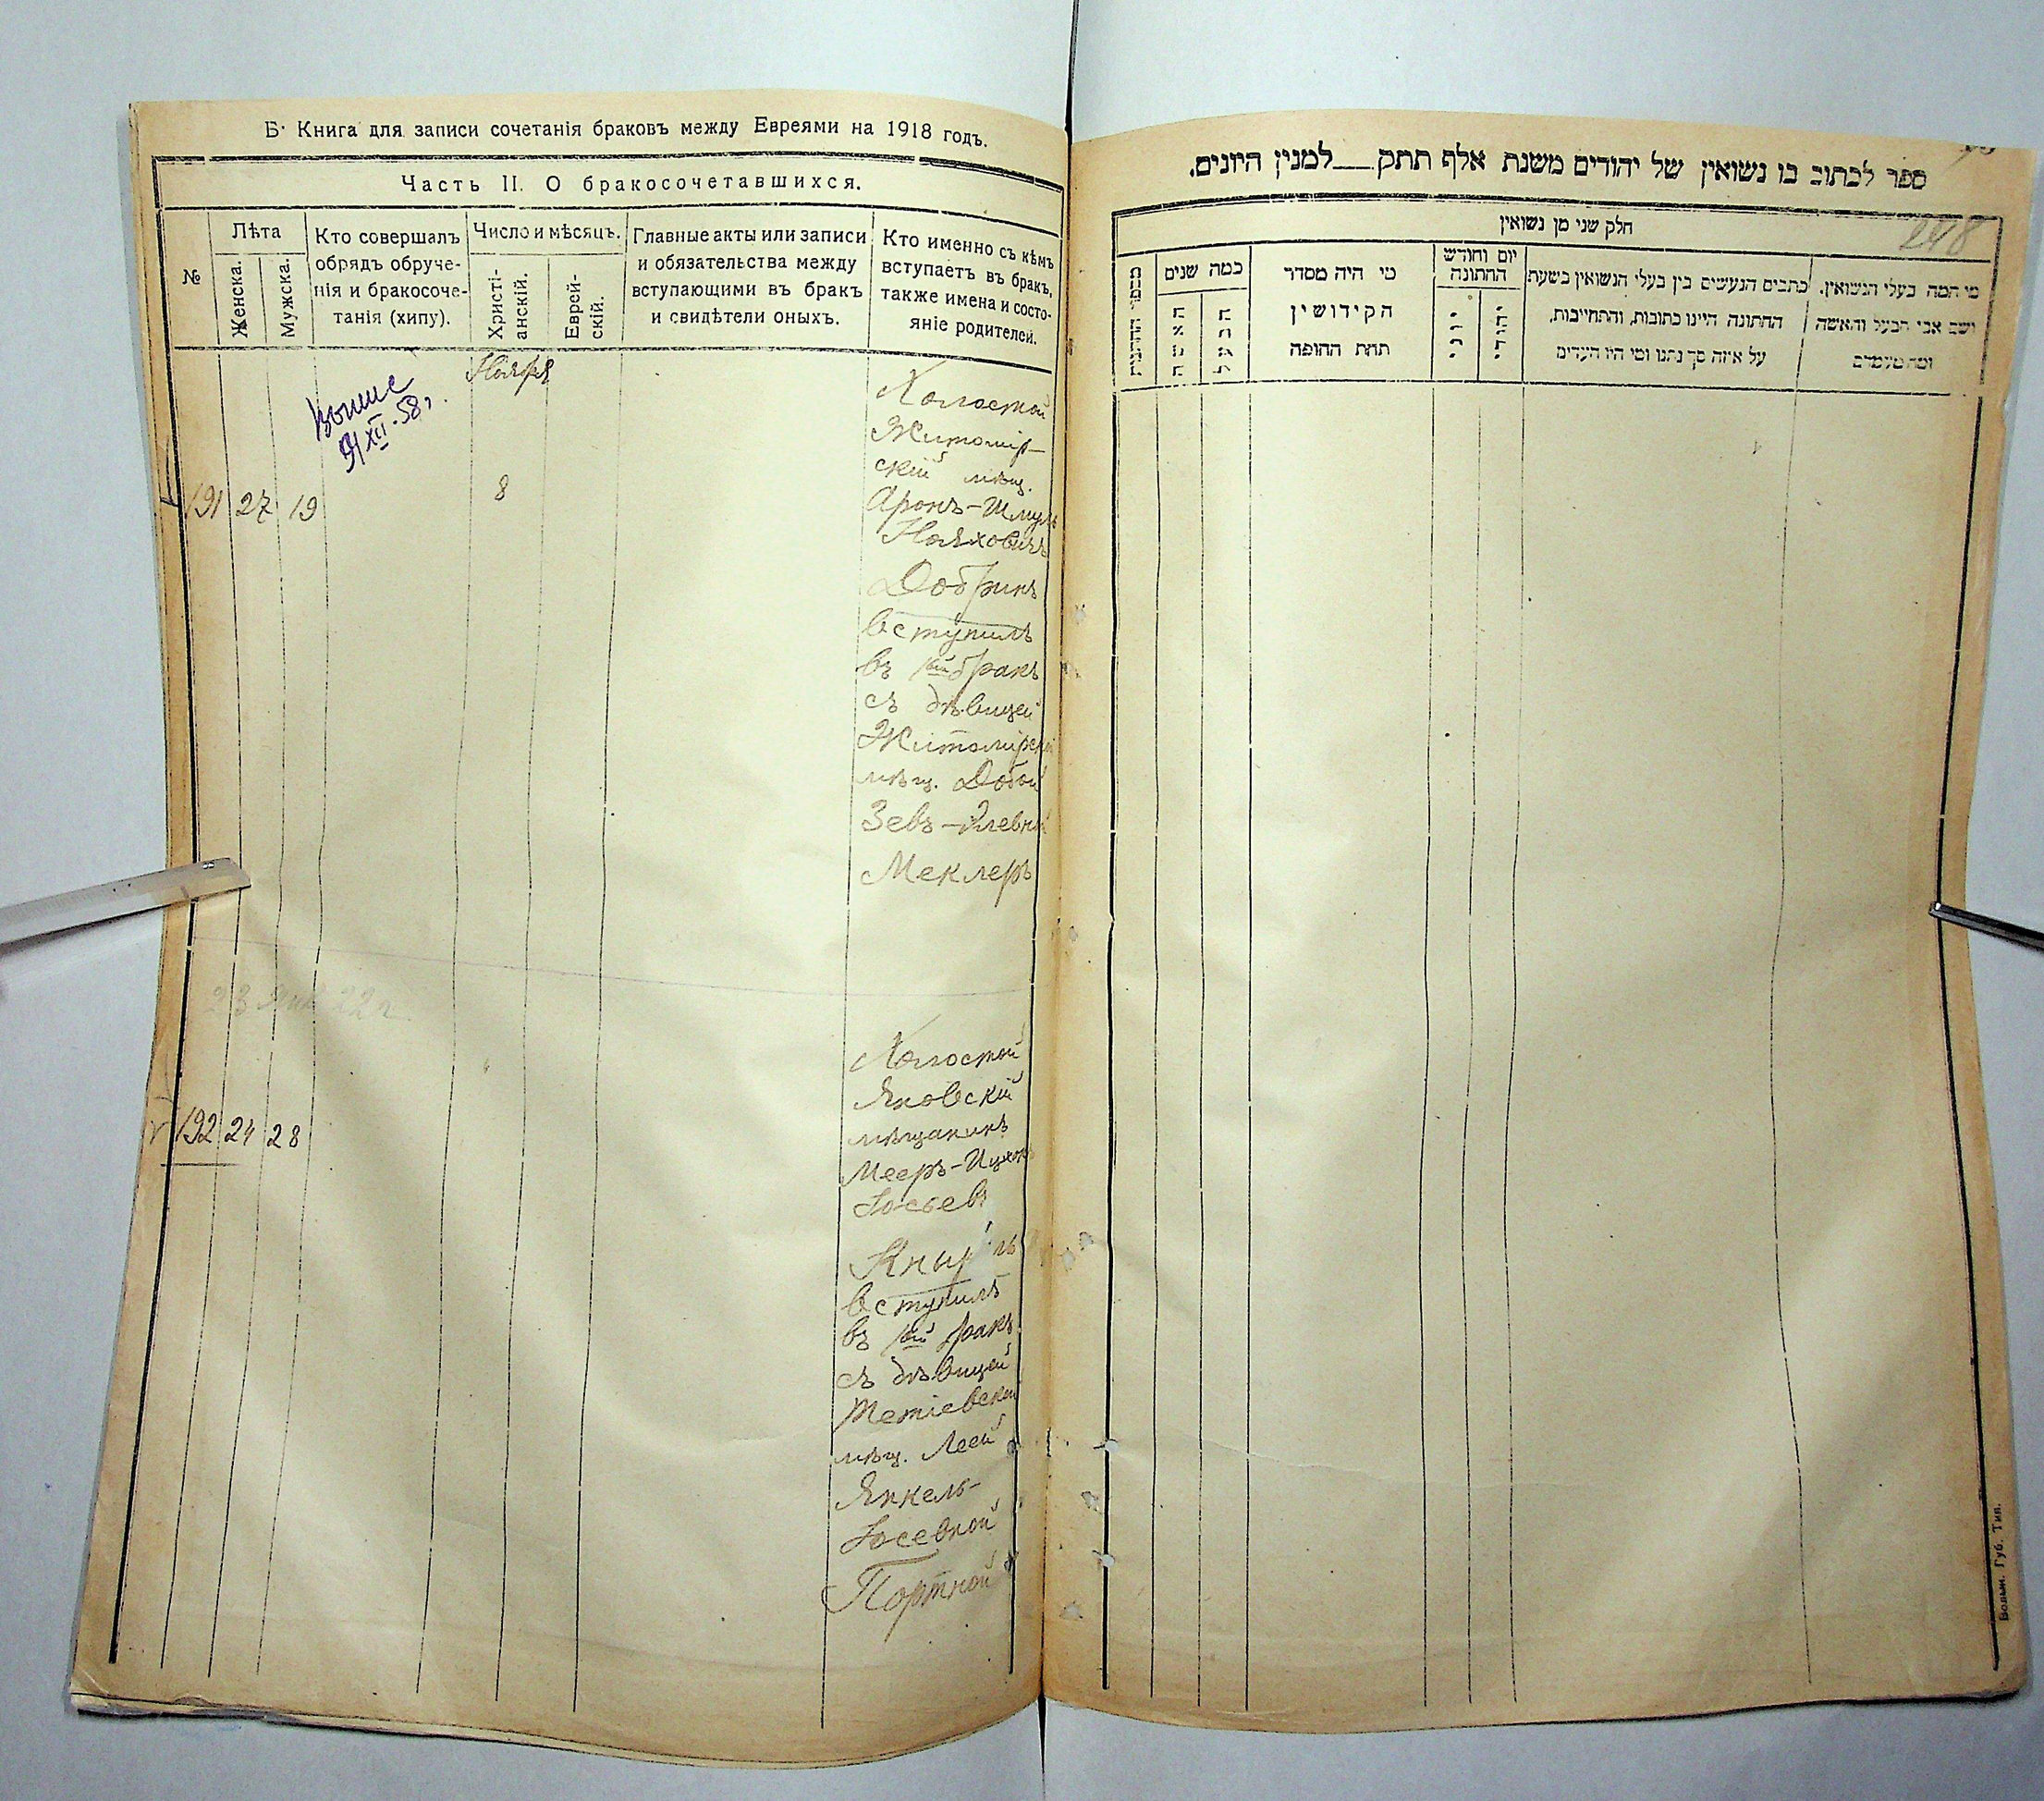 Б. Книга для записи сочетанія браковъ между Евреями на 1918 годъ.
Часть II. О бракосочетавшихся.
№
Лѣта
Женска.
Мужска.
Кто совершалъ
обрядъ обруче-
нія и бракосоче-
танія (хипу).
Число и мѣсяцъ.
Христі-
анскій.
Еврей-
скій.
Главные акты или записи
и обязательства между
вступающими въ бракъ
и свидѣтели оныхъ.
Кто именно съ кѣмъ
вступаетъ въ бракъ,
также имена и состо-
яніе родителей.
Ноября
XII-58г.
191 27 19
8
Холостой
Житомір-
скій мѣщ.
Аронъ-Шмуль
Добринъ
вступилъ
въ 1ый бракъ
съ дѣвицей
Житомірской
мѣщ. Добой
Зевъ-
Меклеръ
22г.
192 24 28
Холостой
Яновскій
мѣщанинъ
Мееръ-Ицхокъ
Іосьевъ
вступилъ
въ 1ый бракъ
съ дѣвицей
Тетіевской
мѣщ. Леей
Янкель-
Іосевной
Портной
ספר לכתוב בו נשואין של יהודים משנת אלף תתק למנין היונים.
248
חלק שני מן נשואין
מספר החתונות
כמה שנים
האשה
הבעל
מי היה מסדר
הקידושין
תחת החופה
יום וחודש
החתונה
יוני
יהודי
כתבים הנעשים בין בעלי הנשואין בשעת
החתונה היינו כתובות, והתחייבות,
על איזה סך נתנו ומי היו העדים
מי המה בעלי הנשואין,
ושם אבי הבעל והאשה
ומה מעמדם
Волын. Губ. Тип.